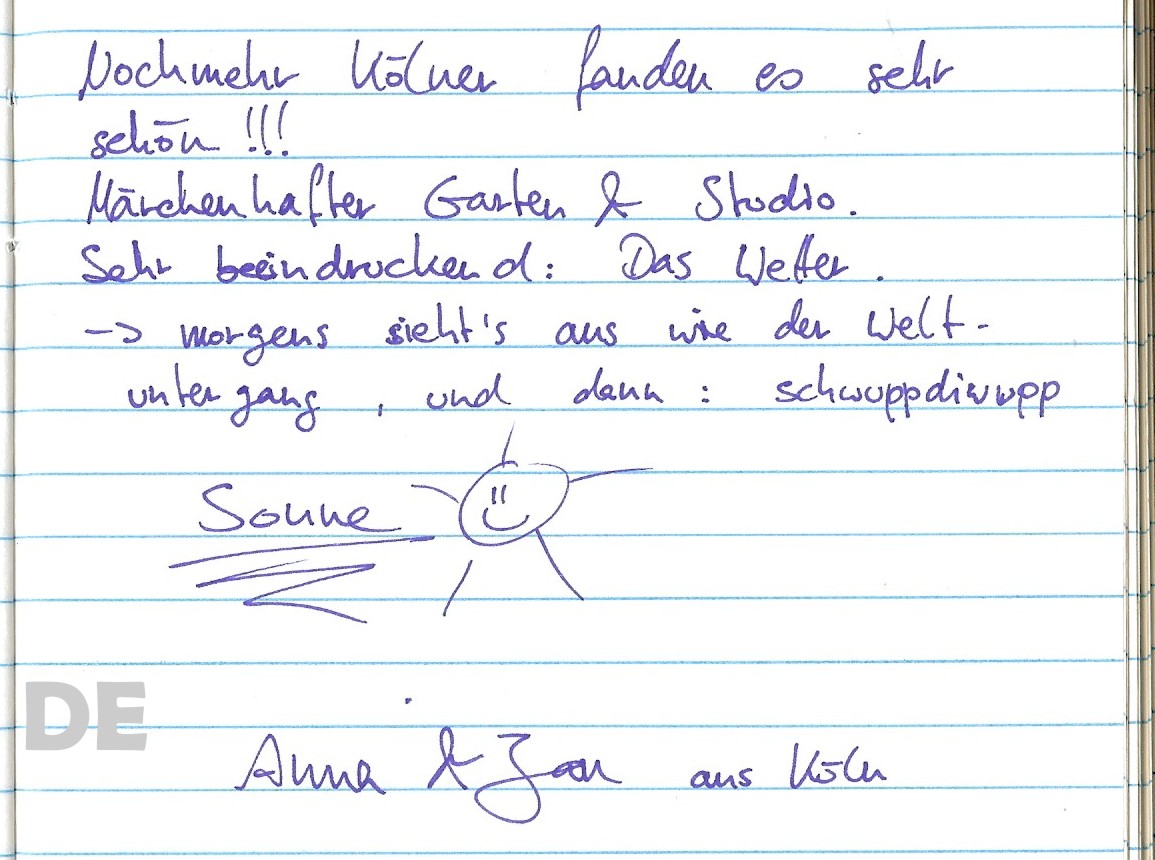 Nochmehr Kölner fanden es sehr
schön !!!
Märchenhafter Garten & Studio.
Sehr beeindruckend: Das Wetter.
-> morgens sieht's aus wie der Welt-
untergang, und dann: schwuppdiwupp
Sonne
DE
Anna & Jan aus Köln